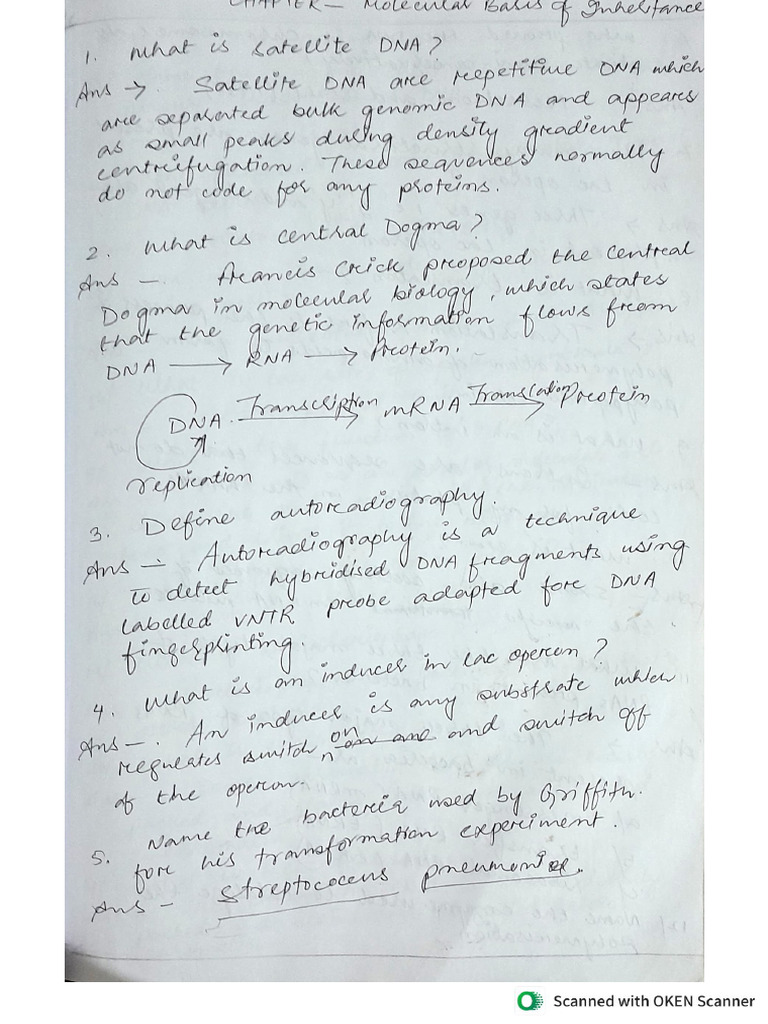 CHAPTER - Molecular Basis of Inheritance
1. What is satellite DNA?
Ans → Satellite DNA are repetitive DNA which
are separated bulk genomic DNA and appears
as small peaks during density gradient
centrifugation. These sequences normally
do not code for any proteins.
2. What is central Dogma?
Ans - Francis Crick proposed the central
Dogma in molecular biology, which states
that the genetic information flows from
DNA → RNA → Protein.
DNA Transcription → mRNA Translation → Protein
replication
3. Define autoradiography.
Ans - Autoradiography is a technique
to detect hybridised DNA fragments using
labelled VNTR probe adapted for DNA
fingerprinting.
4. What is an inducer in lac operon?
Ans - An inducer is any substrate which
regulates switch on and switch off
of the operon.
5. Name the bacteria used by Griffith
for his transformation experiment.
Ans - Streptococcus pneumoniae.
Scanned with OKEN Scanner